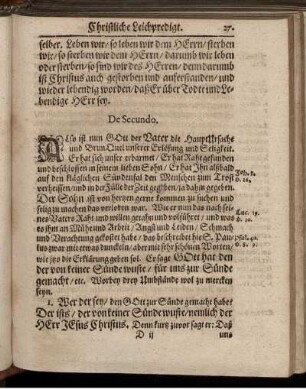 Christliche Leichpredigt. 27.
selber. Leben wir/ so leben wir dem HErrn/ sterben
wir/ so sterben wir dem HErrn/ darumb wir leben
oder sterben/ so sind wir des HErren/ denn darumb
ist Christus auch gestorben und aufferstanden/ und
wieder lebendig worden/ daß Er über Todte und Le-
bendige HErr sey.
De Secundo,
Also ist nun GOtt der Vater die Haupt-Ursache
und Brun-Quel unserer Erlösung und Seligkeit.
Er hat sich unser erbarmet/ Er hat Raht gefunden
und beschlossen in seinem lieben Sohn/ Er hat Ihn alßbald
auf den kläglichen Sündenfall den Menschen zum Trost
verheissen/ und in der Fülle der Zeit gegeben/ ja dahin gegeben.
Der Sohn ist von hertzen gerne kommen zu suchen und
selig zu machen das verloren war. Wie er nun das nach sei-
nes Vaters Raht und willen gethan und vollführet/ und was
es ihm an Mühe und Arbeit/ Angst und Leiden/ Schmach
und Verachtung gekostet habe/ das beschreibet hie S. Pau-
lus zwar mit etwas dunckeln/ aber mit sehr schönen Worten/
wie jtzo die Erklärung geben sol. Er sage GOtt hat den
der von keiner Sünde wuste/ für uns zur Sünde
gemacht/ etc. Worbey drey Umbstände wol zu mercken
seyn.
1. Wer der sey/ den GOtt zur Sünde gemacht habe?
Der ists/ der von keiner Sünde wuste/ nemlich der
HErr JEsus Christus. Denn kurtz zuvor sagt er: Daß
D ij uns